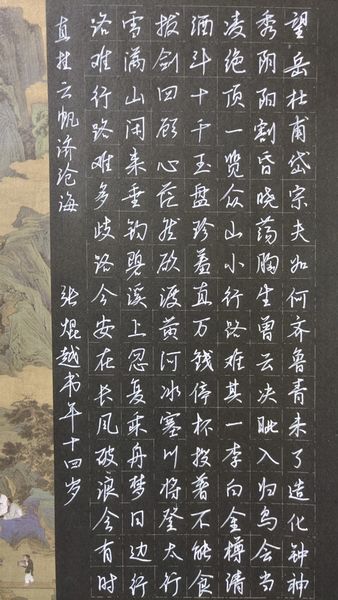 望岳杜甫岱宗夫如何齐鲁青未了造化钟神
秀阴阳割昏晓荡胸生曾云决眦入归鸟会当
凌绝顶一览众山小行路难其一李白金樽清
酒斗十千玉盘珍羞直万钱停杯投箸不能食
拔剑四顾心茫然欲渡黄河冰塞川将登太行
雪满山闲来垂钓碧溪上忽复乘舟梦日边行
路难行路难多歧路今安在长风破浪会有时
直挂云帆济沧海 张焜越书年十四岁